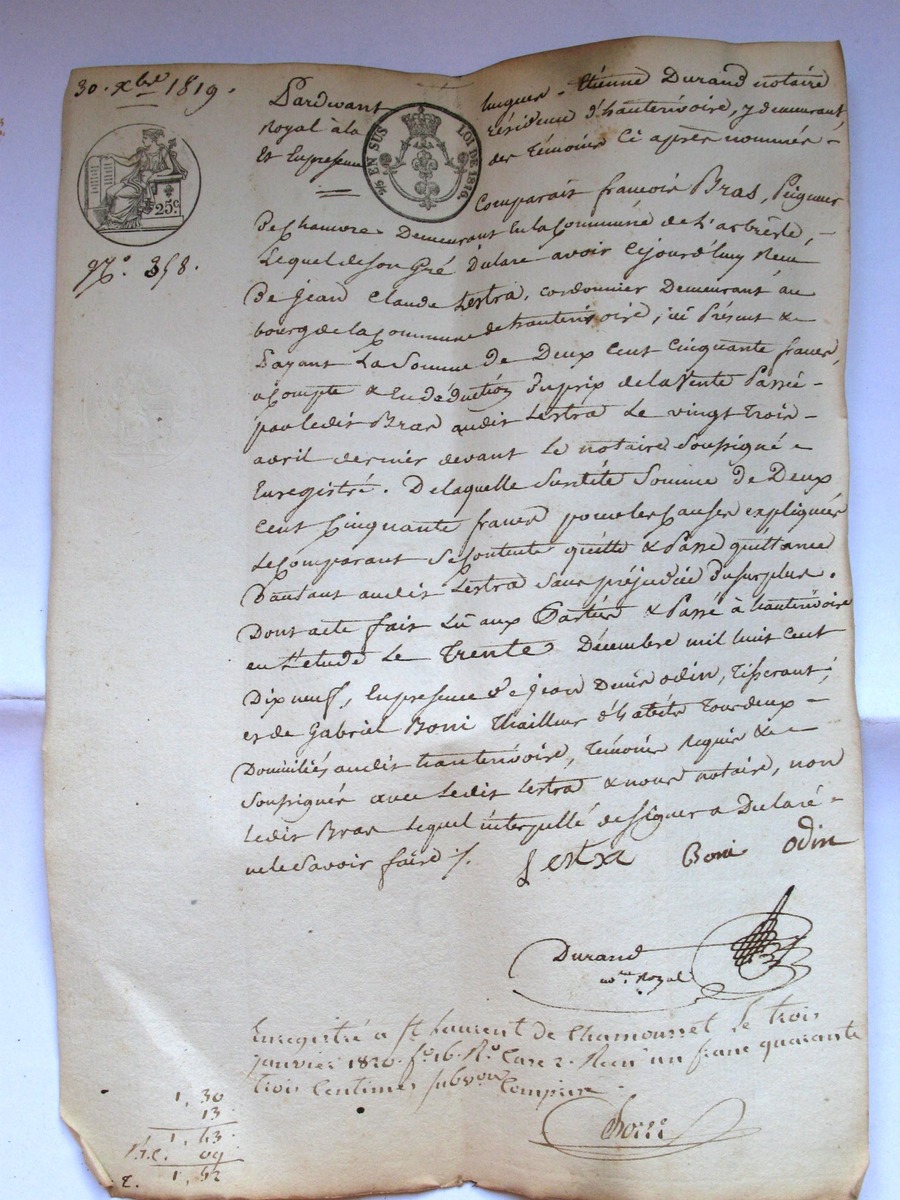 30. Xbre 1819.
Pardevant hugues - Etienne Durand notaire
Royal à la résidence d'hauterivoire, y demeurant,
Et En presence des temoins Ci après nommés -
25c
¼ EN SUS LOI DE 1816.
Comparait françois Bras, Peigneur
De Chanvre Demeurant En la Commune de L'arbresle, -
N°. 358.
Lequel de son Gré Déclare avoir Cejourd'huy Recu
De Jean Claude Lestra, cordonnier Demeurant au
bourg de la Commune de hauterivoire, ici Présent &
payant La Somme de Deux Cent Cinquante francs,
acompte & En déduction Du prix de la Vente Passée -
par ledit Bras audit Lestra Le vingt trois -
avril dernier devant Le notaire Soussigné -
Enregistré. De laquelle Susdite Somme de Deux
Cent Cinquante francs pour les Causes expliquées
Le Comparant Se Contente quitte & Passe quittance
D'autant audit Lestra Sans préjudice Du surplus.
Dont acte fait Lû aux Parties & Passé à hauterivoire
en L'etude Le Trente Décembre mil huit cent
Dix neuf, En presence de Jean Denis odin, Tisserant;
et de Gabriel Boni Thailleur d'habits Tous deux -
Domiciliés audit hauterivoire, Témoins Requis & -
Soussignés avec Ledit Lestra & nous notaire, non
Ledit Bras Lequel interpellé de Signer a Déclaré -
ne le Savoir faire ./.
Lestra Boni odin
Durand
nre Royal
Enregistré a St Laurent de Chamousset le trois
janvier 1820. fo. 16. Ro. Case 2. Recu un franc quarante
trois Centimes subvon Comprise -
1, 30
13
1, 43
09
1, 52